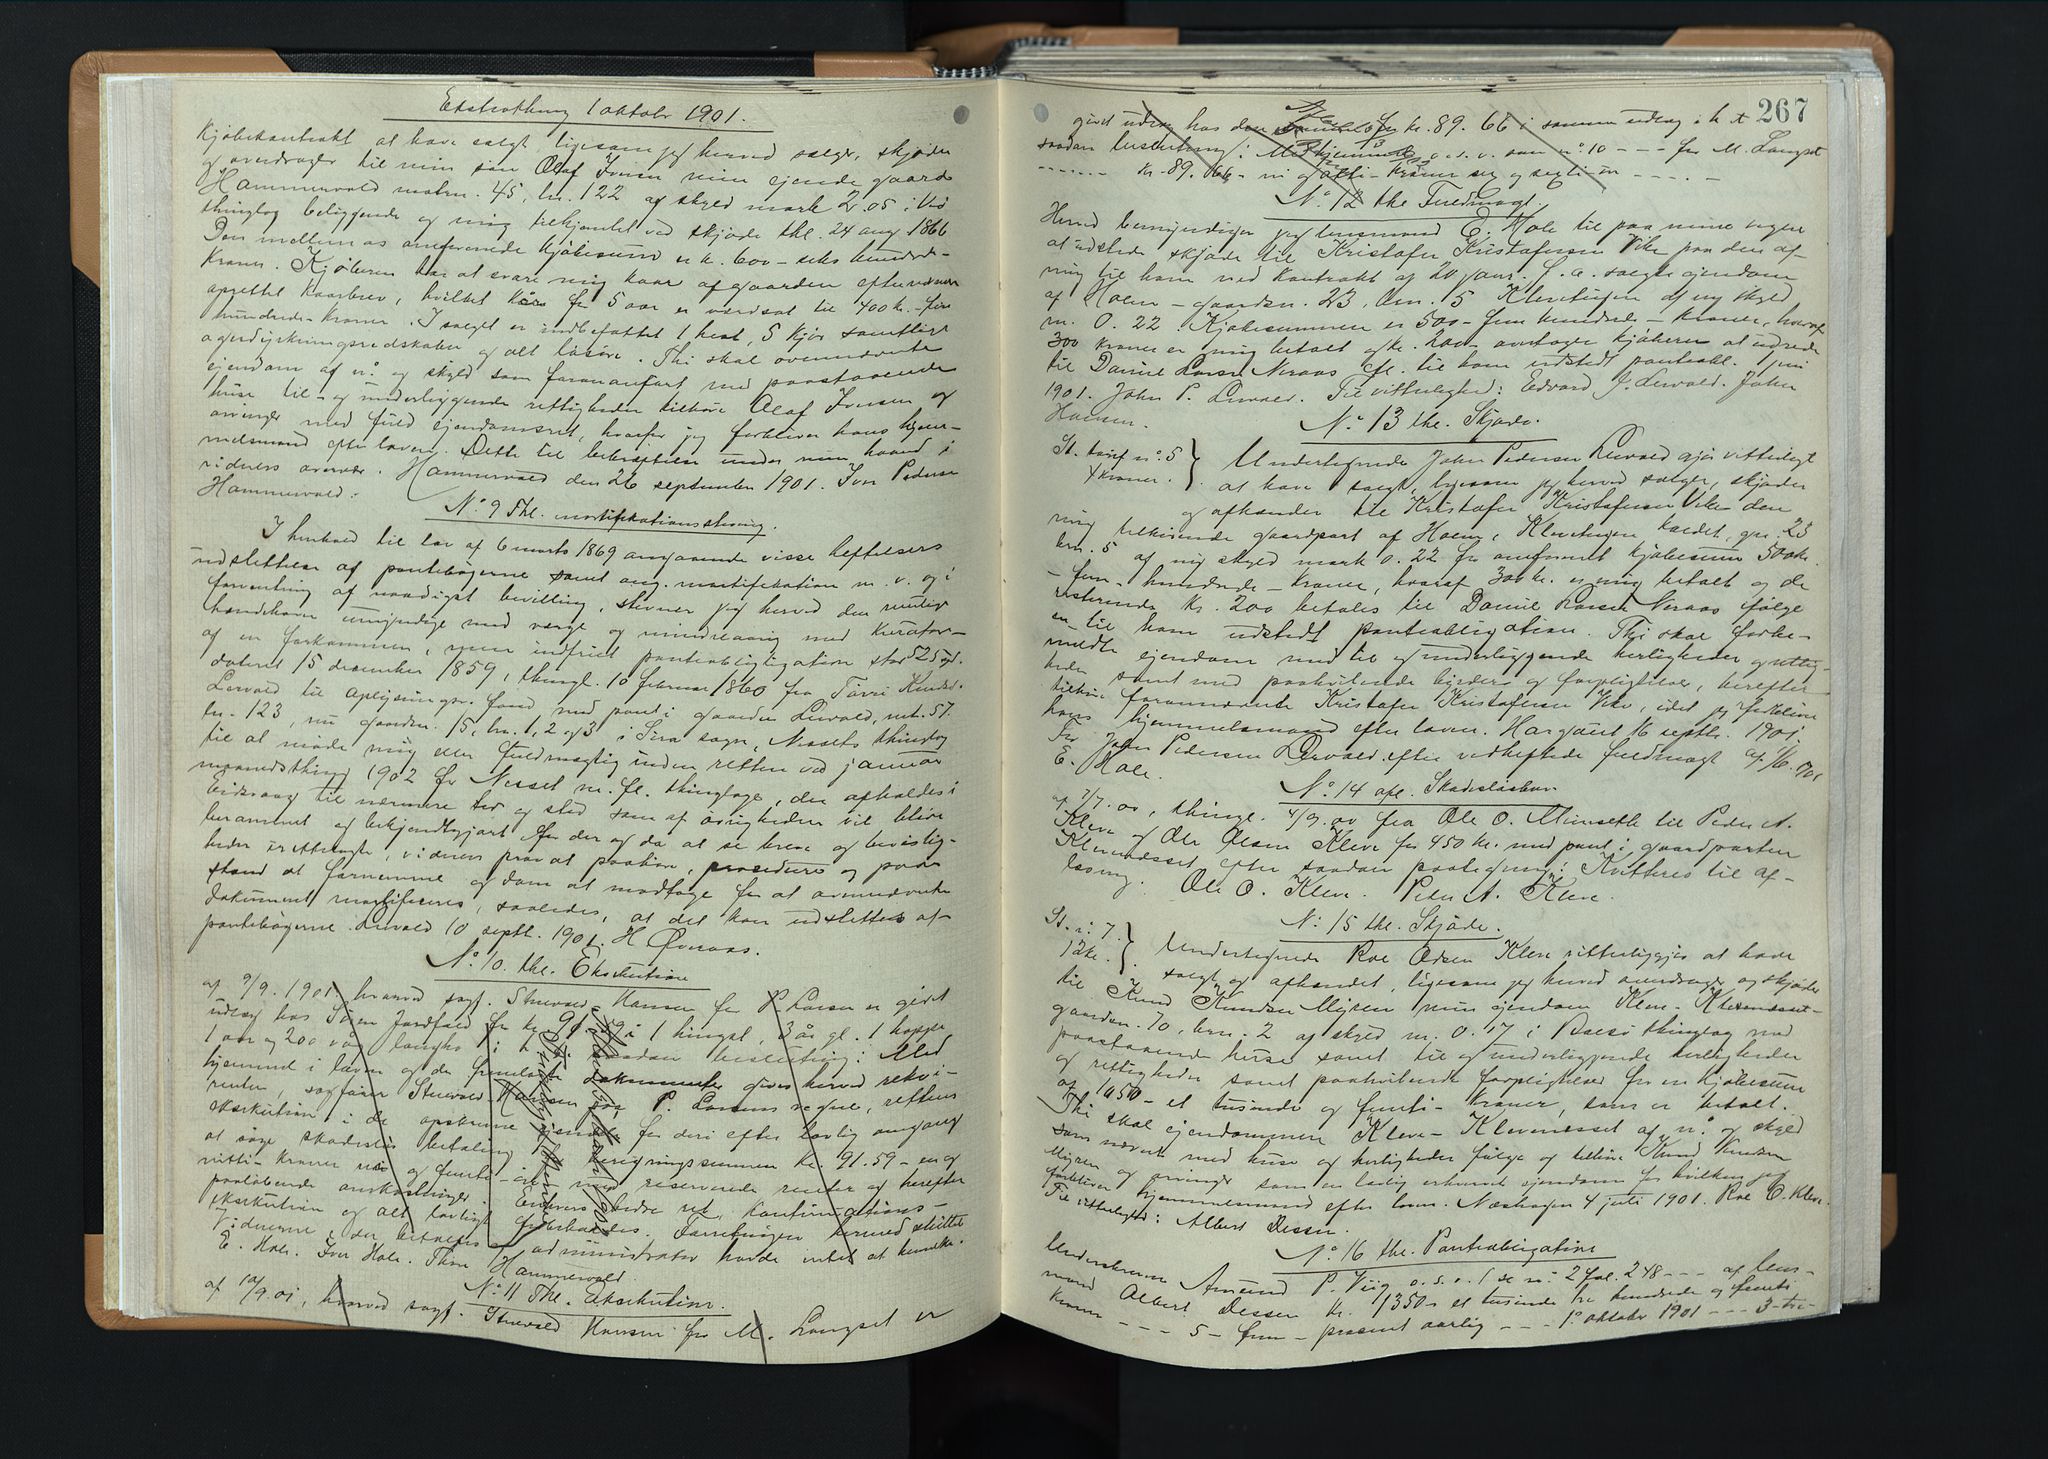 Ekstrathing 1 oktober 1901.
Kjøbekontrakt at have solgt, ligesom jeg herved sælger, skjøder
og overdrager til min søn Olaf Iversen min eiende gaard
Hammervold matrn. 45, brn. 122 af skyld mark 2.05 i
thinglag beliggende og mig tilhjemlet ved skjøde thl. 24 aug 1866
Den mellem os omforenede kjøbesum er kr. 600 - seks hundrede -
kroner. Kjøberen har at svare mig kaar af gaarden efter
oprettet kaarbrev, hvilket kaar for 5 aar er værdsat til 400 kr. - fire
hundrede - kroner. I salget er indbefattet 1 hest, 5 kjør samtlige
agerdyrkningsredskaber og alt løsøre. Thi skal ovennævnte
eiendom af n° og skyld som foran anført med paastaaende
huse til- og underliggende rettigheder tilhøre Olaf Iversen og
arvinger med fuld eiendomsret, hvorfor jeg forbliver hans hjem-
melsmand efter loven. Dette til bekræftelse under min haand i
vidners overvær. Hammervold den 26 september 1901. Iver Pedersen
Hammervold.
N° 9 Thl. mortifikationsstevning.
I henhold til lov af 6 marts 1869 angaaende visse heftelsers
udslettelse af pantebøgerne samt ang. mortifikation m. v. og i
forventning af naadigst bevilling, stevner jeg herved den mulige
havende umyndige med værge og mindreaarig med kurator -
af en forkommen, men indfriet pantobligation stor 525
dateret 15 december 1859, thingl. 10 februar 1860 fra
Lervold til oplysningsv. fond med pant i gaarden Lervold, mt. 57.
ln. 123, nu gaardsn. 15, brn. 1, 2 og 3 i Sira sogn, Nessets thinglag
til at møde mig eller fuldmægtig inden retten ved januar
maanedsthing 1902 for Nesset m. fl. thinglage, der afholdes i
Eidsvaag til nærmere tid og sted som af øvrigheden vil blive
berammet og bekjendtgjort for der og da at se breve og bevislig-
heder irettelagte, vidners prov at paahøre, procedure og paa-
stand at fornemme og dom at modtage for at omnævnte
dokument mortificeres, saaledes, at det kan udslettes af
pantebøgerne. Lervold 10 septb. 1901. H Øveraas.
N° 10. thl. Eksekution
af 9/9. 1901, hvorved sagf. Struevold-Hansen for P. Larsen er givet
udlæg hos Søren Jordfald for kr. 91.59 i 1 hingst, 3 år gl. 1 hoppe
1 aar og 200 vog langhø
hjemmel i loven og de fremlagte dokumenter gives herved rekvi-
renten sagfører Struevold-Hansen for P. Larsens regne, rettens
eksekution i de opskrevne gjenstande for deri efter lovlig omgang
at søge skadesløs betaling kr. 91.59 - en og
nitti - kroner ni og femti - øre med reserverede renter og herefter
paaløbende omkostninger. Enhvers bedre ret, kontinuations-
eksekution og alt lovligt forbeholdes. Forretningen hermed sluttet
Vidnerne betales administrator havde intet at bemærke.
E. Hole. Iver Hole. Thore Hammervold
N° 11 Thl. Eksekution.
af 10/9.01, hvorved sagf. Struevold Hansen for M. Langset er
267
givet udlæg hos den for kr. 89.66 i samme udlæg
saadan beslutning: Med hjemmel o. s. v. som n° 10 - - - for M. Langset
- - - - - - kr. 89.66 - ni og otti - kroner sex og sexti øre - - - - -
N° 12 thl. Fuldmagt.
Herved bemyndiger jeg lensmand E. Hole til paa mine vegne
at udstede skjøde til Kristofer Kristofersen Vike paa den af
mig til ham ved kontrakt af 20 janr. f. a. solgte eiendom
af Hoem - gaardsn. 23, brn. 5 Klevetugen af ny skyld
m. 0.22. Kjøbesummen er 500 - fem hundrede - kroner, hvoraf
300 kroner er mig betalt og kr. 200 - overtager kjøberen at udrede
til Daniel Larsen Neraas ifl. til ham udstedt pantobl. 1 juni
1901. John P. Lervold. Til vitterlighed: Edvard J. Lervold. John
Hansen.
N° 13 thl. Skjøde.
St. brief n° 5
4 kroner.
Undertegnede John Pedersen Lervold gjør vitterligt
at have solgt, ligesom jeg herved sælger, skjøder
og afhænder til Kristofer Kristofersen Vike den
mig tilhørende gaardpart af Hoem, Klevetugen kaldet, gno 23
brn. 5 af ny skyld mark 0.22 for omforenet kjøbesum 500 kr.
- fem - hundrede - kroner, hvoraf 300 kr. er mig betalt og de
resterende kr. 200 betales til Daniel Larsen Neraas ifølge
en til ham udstedt pantobligation. Thi skal forbe-
meldte eiendom med til og underliggende herligheder og rettig-
heder samt med paahvilende byrder og forpligtelser, herefter
tilhøre forannævnte Kristofer Kristofersen Vike, idet jeg forbliver
hans hjemmelsmand efter loven. Hargaut 16 septbr. 1901.
For John Pedersen Lervold efter vedheftede fuldmagt af 1/6. 1901
E. Hole.
N° 14 afl. Skadesløsbrev
af 7/7.00, thingl. 4/9.00 fra Ole O. Minseth til Peder A.
Kleve og Ole Olsen Kleve for 450 kr. med pant i gaardparten
Klevenesset efter saadan paategning: Kvitteres til af-
løsning. Ole O. Kleve. Peder A. Kleve.
N° 15 thl. Skjøde.
St. n: 7.
12 kr.
Undertegnede Roe Odsen Kleve vitterliggjør at have
solgt og afhændet, ligesom jeg herved overdrager og skjøder
til Knud Knudsen Myren min eiendom Kleve - Klevenesset -
gaardsn. 70, brn. 2 af skyld m. 0.17 i Bolsø thinglag med
paastaaende huse samt til og underliggende herligheder
og rettigheder samt paahvilende forpligtelser for en kjøbesum
af 1050 - et tusinde og femti - kroner, som er betalt.
Thi skal eiendommen Kleve - Klevenesset af n° og skyld
som nævnt med huse og herligheder følge og tilhøre Knud Knudsen
Myren og arvinger som en lovlig erhvervet eiendom for hvilken jeg
forbliver hjemmelsmand efter loven. Næshagen 4 juli 1901. Roe O. Kleve.
Til vitterlighed: Albert Desser.
N° 16 thl. Pantobligation
Underskrevne Amund P. Viig o. s. v. (se n: 2 fol. 248 - - - af lens-
mand Albert Desser kr. 1350 - et tusinde tre hundrede og femti
kroner - - - 5 - fem - procent aarlig - - - 1° oktober 1901 - - - 3 - tre -